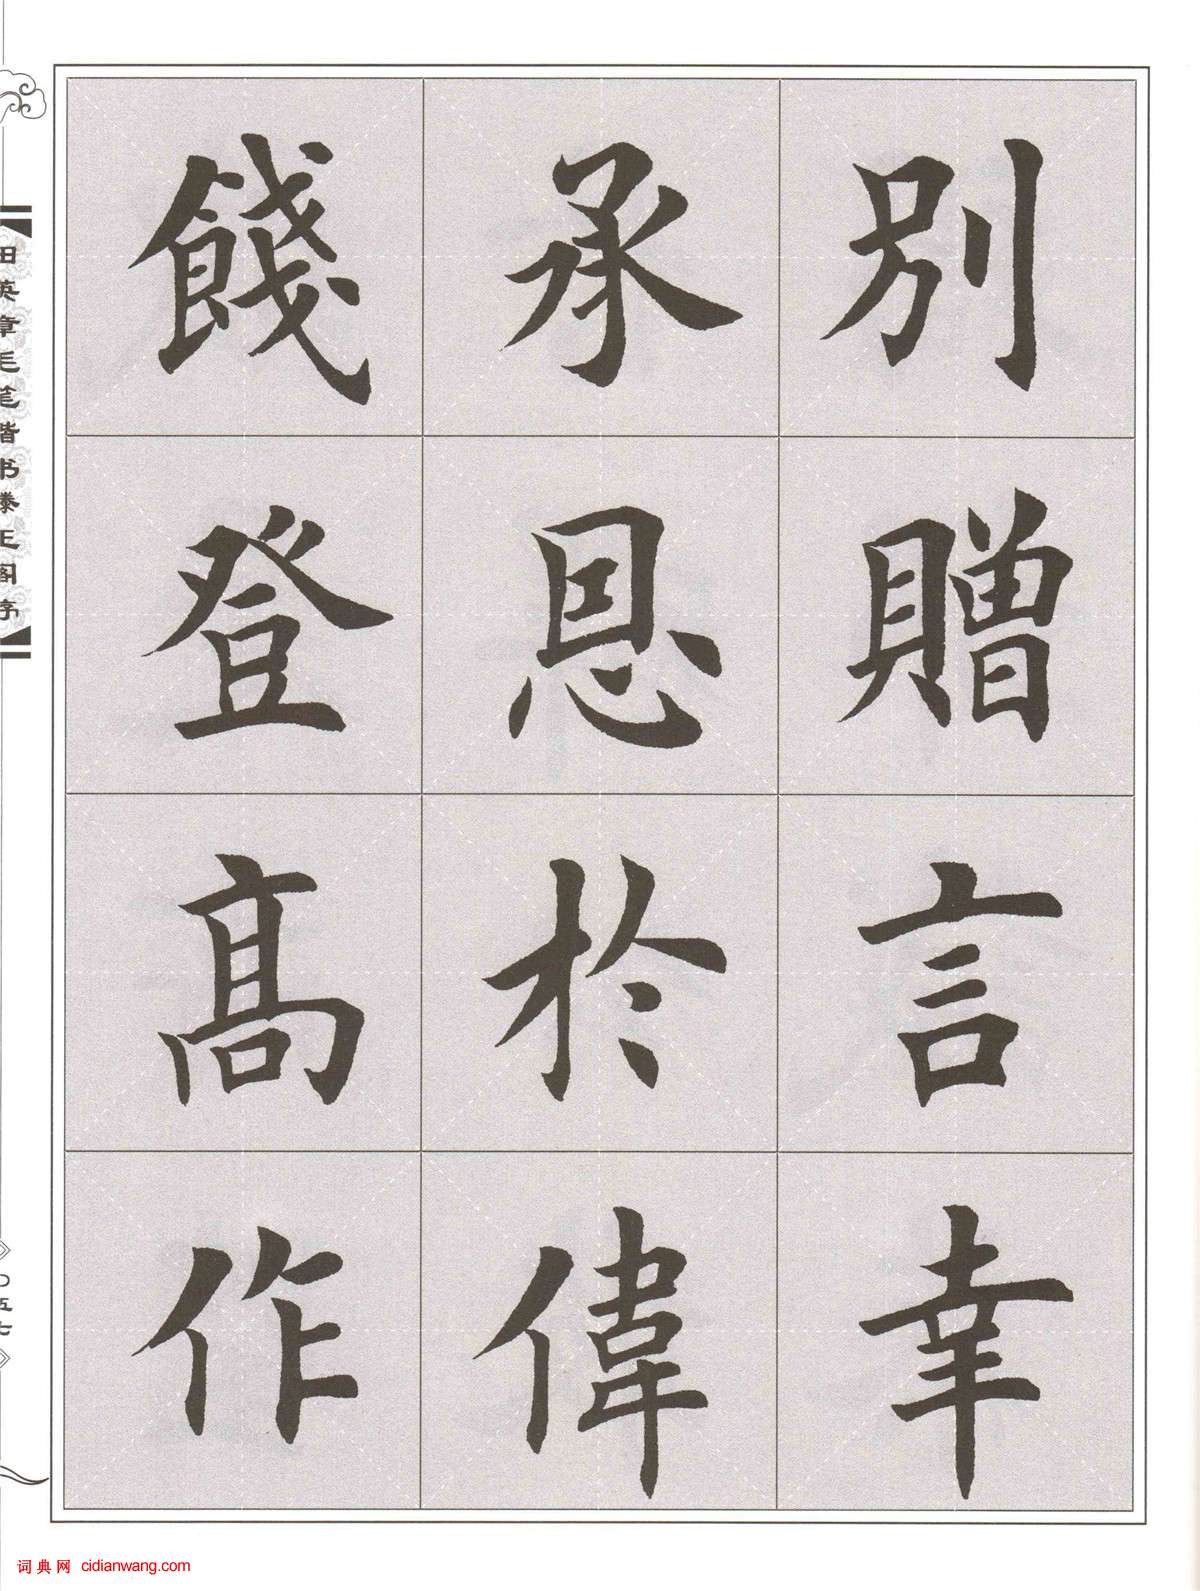 別贈言幸
承恩於偉
餞登高作
田英章毛笔楷书滕王阁序
〇五七
词典网 cidianwang.com